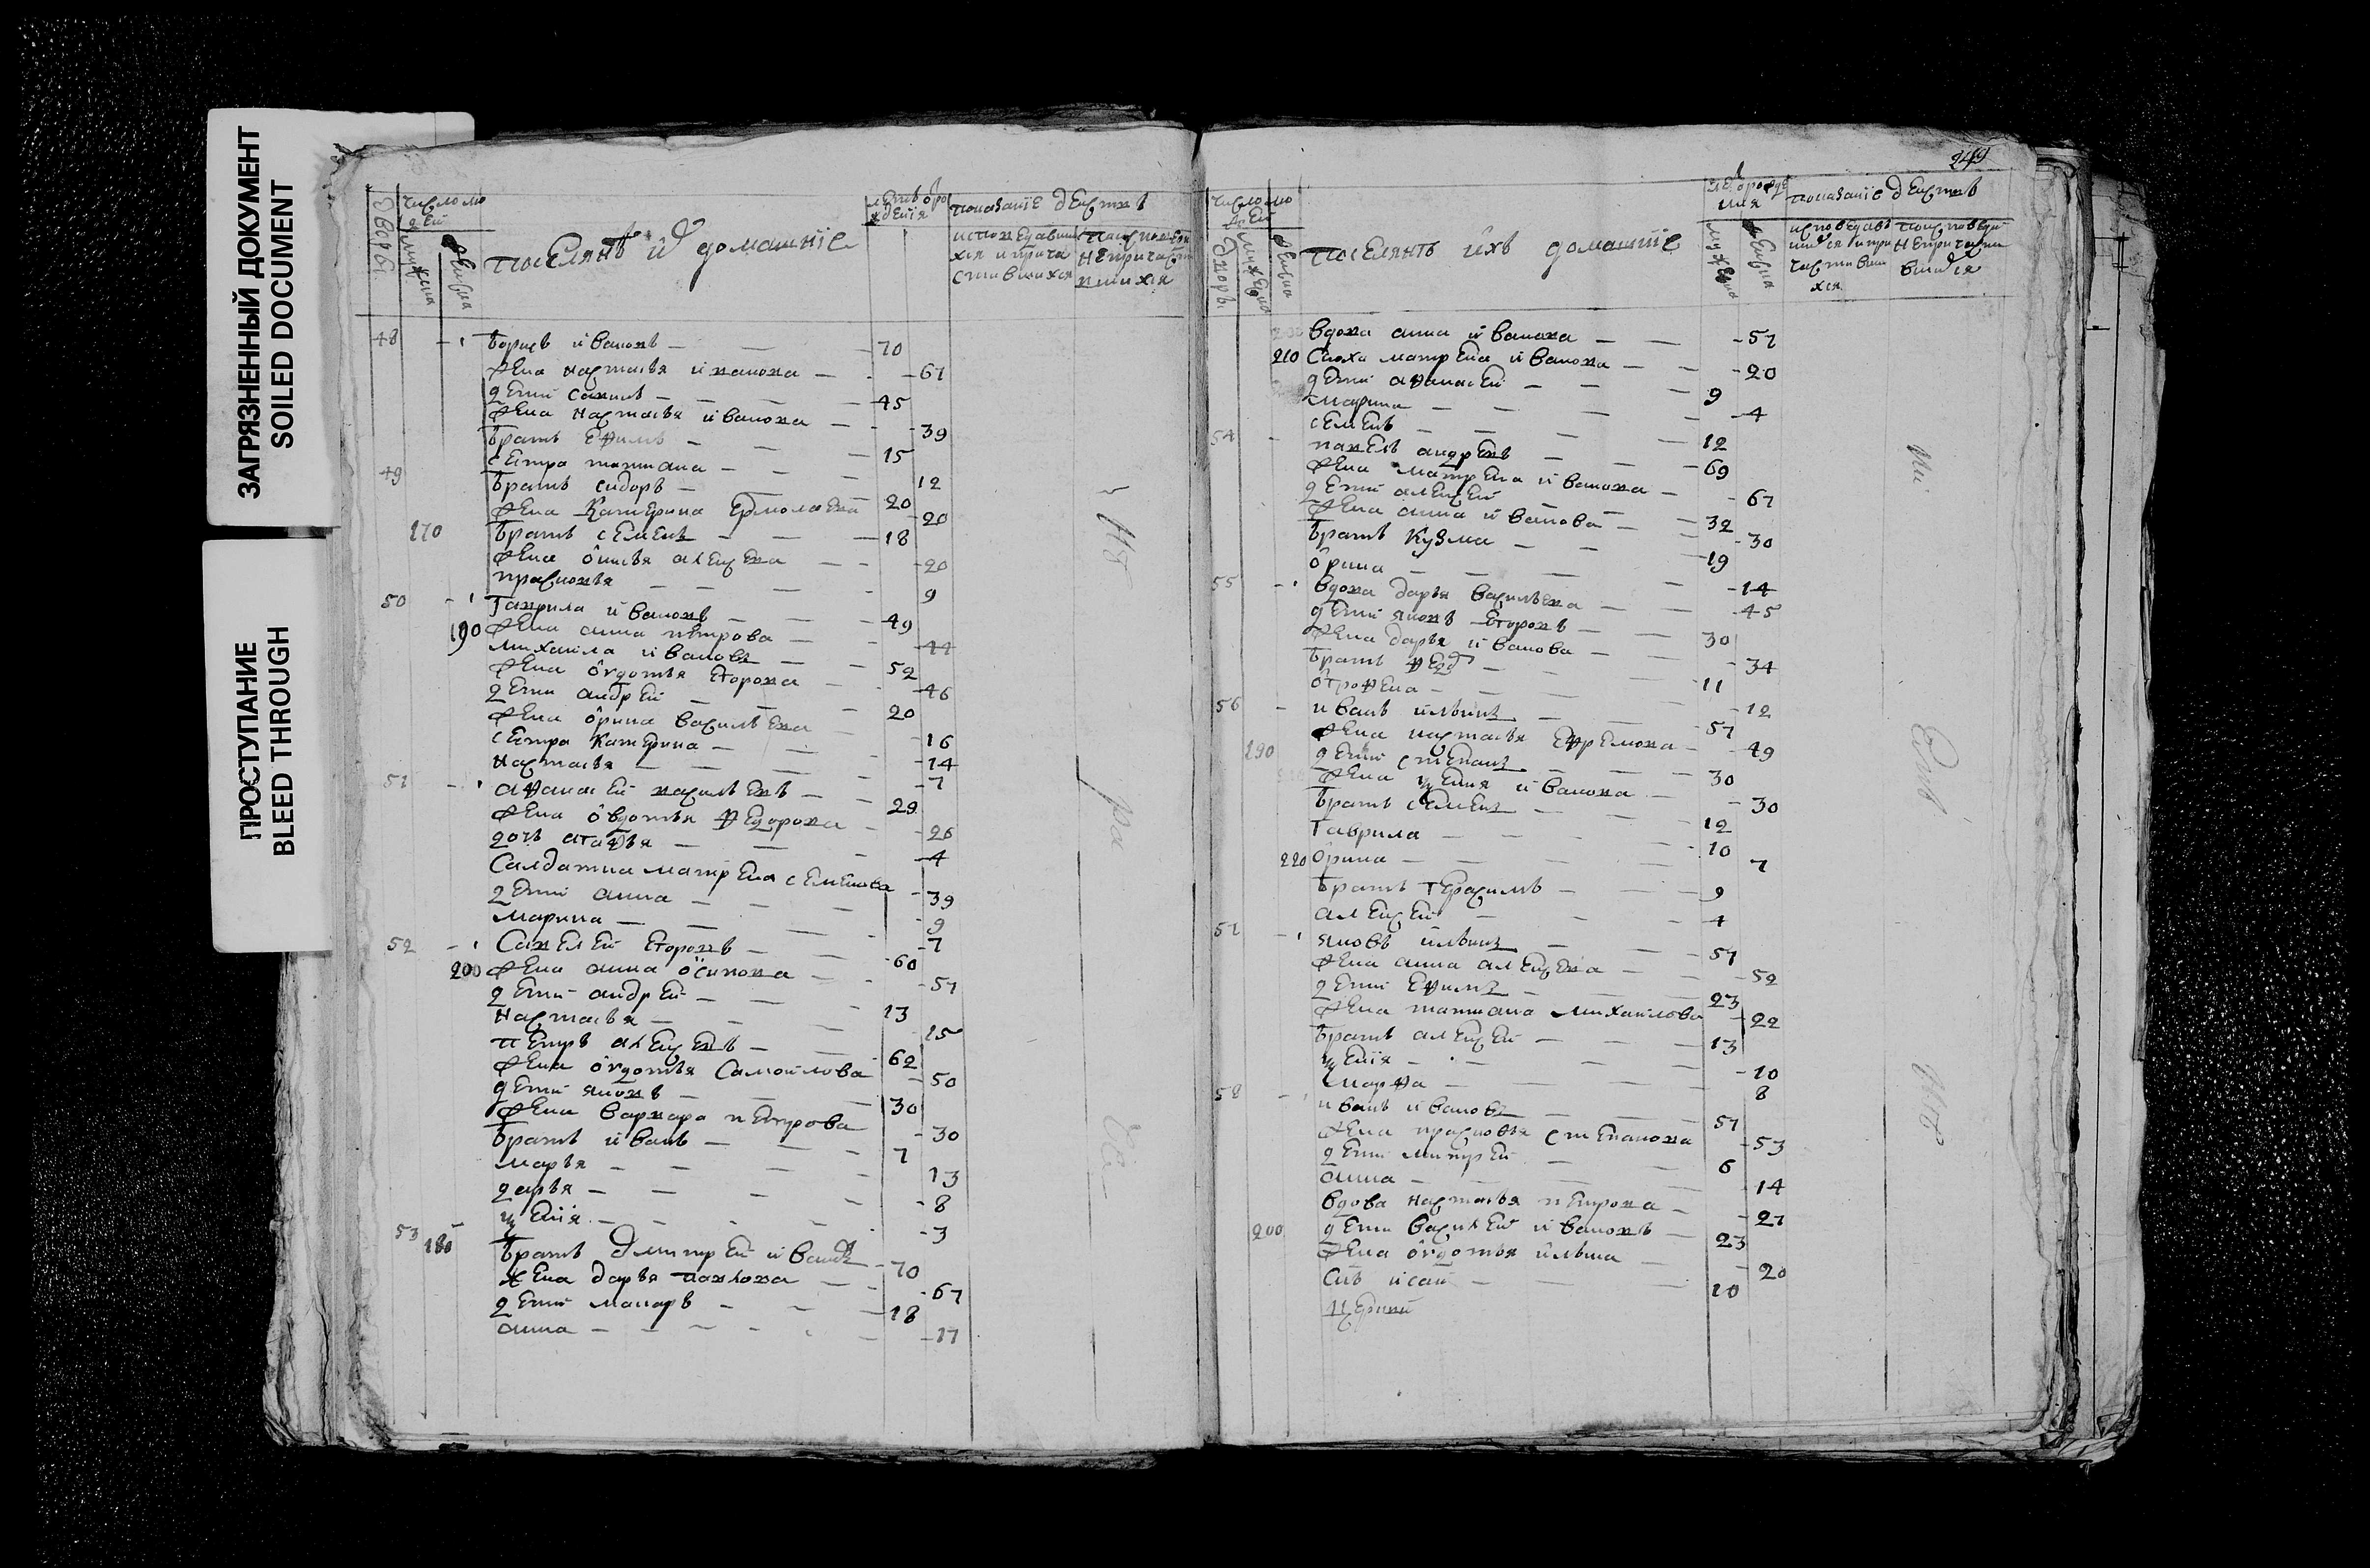 ЗАГРЯЗНЕННЫЙ ДОКУМЕНТ
SOILED DOCUMENT
ПРОСТУПАНИЕ
BLEED THROUGH
число лю
дей
поселянъ и домашнїе
показанїе действ
48 борисъ ивановъ 70
жена настасья иванова 67
дети савинъ 45
жена настасья иванова 39
братъ ефимъ 15
сестра татиана 12
49 братъ сидоръ 20
жена Катерина Ермолаева 20
170 братъ семенъ 18
жена алексеева 20
прасковья 9
50 гаврила ивановъ 49
190 жена анна петрова 44
михаила ивановъ 52
жена овдотья егорова 46
дети андрей 20
жена орина васильева 16
сестра катерина 14
настасья 7
51 афанасей васильевъ 29
жена овдотья федорова 26
дочь агафья 4
Салдатка матрена семенова 39
дети анна 9
марина 7
52 Савелей егоровъ 60
200 жена анна осипова 57
дети андрей 13
настасья 15
петръ алексеевъ 62
жена овдотья Самоилова 50
дети яковъ 30
жена варвара петрова 30
братъ иванъ 7
марья 13
дарья 8
ксения 3
53 180 братъ дмитрей ивановъ 70
жена дарья павлова 67
дети макаръ 18
анна 17
249
число лю
дей
поселянъ ихъ домашнїе
показанїе действ
вдова анна иванова 57
210 Сноха матрена иванова 20
дети афанасей 9
марина 4
семенъ 12
54 павелъ андреевъ 69
жена матрена иванова 67
дети алексей 32
жена анна иванова 30
братъ Кузма 19
орина 14
55 вдова дарья васильева 45
дети яковъ егоровъ 30
жена дарья иванова 34
братъ фед 11
офросена 12
56 иванъ ильинъ 57
жена настасья ефремова 49
190 дети степанъ 30
жена ксения иванова 30
братъ семенъ 12
гаврила 10
220 орина 7
братъ герасимъ 9
алексей 4
57 яковъ ильинъ 57
жена анна алексеева 52
дети ефимъ 23
жена татиана михаилова 22
братъ алексей 13
ксенїя 10
марфа 8
58 иванъ ивановъ 57
жена прасковья степанова 53
дети митрей 6
анна 14
вдова настасья петрова 27
200 дети василей ивановъ 23
жена овдотья ильина 20
Снъ исай 10